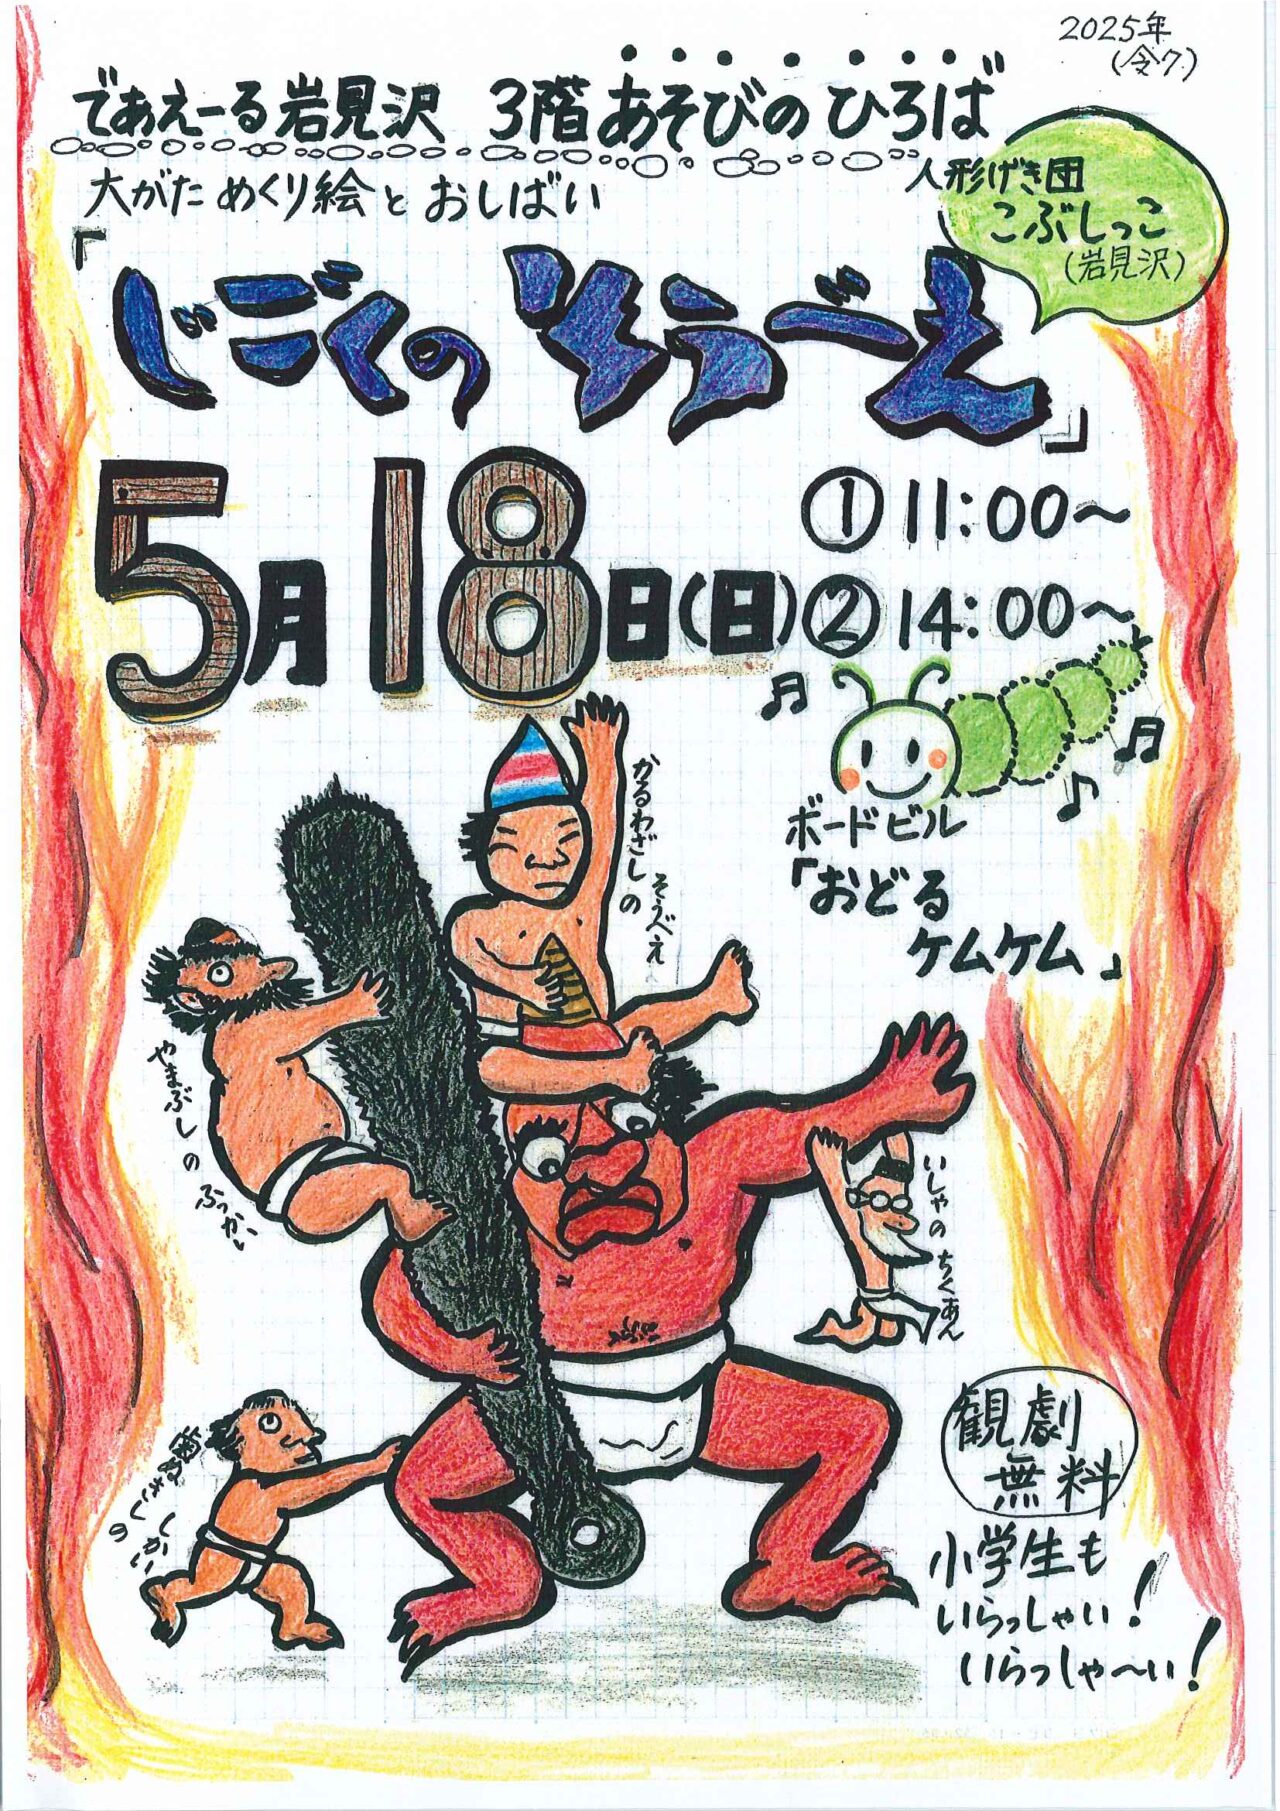 2025年
(令7)
であえーる岩見沢 3階 あそびのひろば
大がためくり絵とおしばい
人形げき団
こぶしっこ
(岩見沢)
「じごくのそうべえ」
5月18日(日)
① 11:00〜
② 14:00〜
ボードビル
「おどる
ケムケム」
かるわざしの
そうべえ
やまぶしの ふっかい
いしゃの ちくあん
しかい
観劇
無料
小学生も
いらっしゃい!
いらっしゃ〜い!